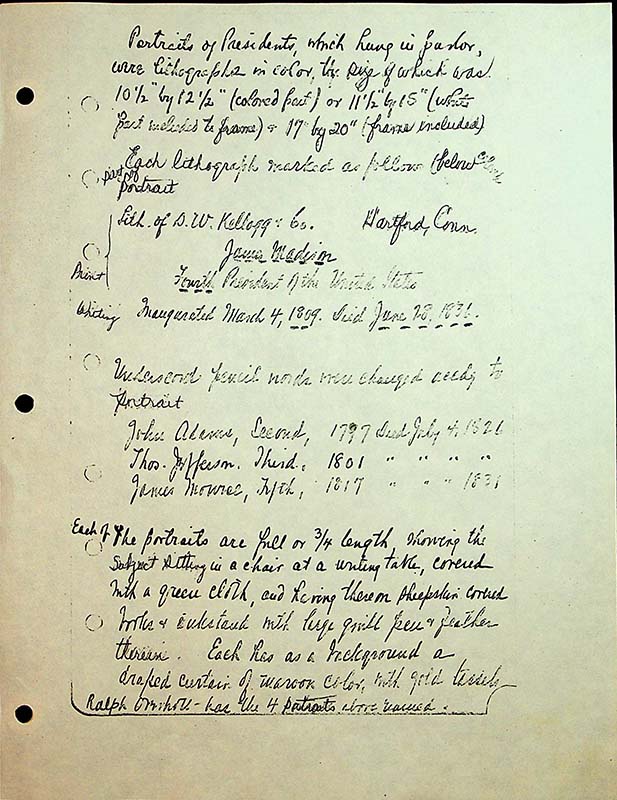 Portraits of Presidents, which hung in parlor,
were lithographs in color, the size of which was
10 1/2" by 12 1/2" (colored part) or 11 1/2" by 15" (white
part included to frame) & 17" by 20" (frame included)
Each lithograph marked as follows (below colored
part of portrait
Lith. of D. W. Kellogg & Co. Hartford, Conn.
James Madison
Print
Fourth President of the United States
Writing Inaugurated March 4, 1809. Died June 28, 1836.
Underscored pencil words were changed accdg to
portrait
John Adams, Second, 1797 Died July 4, 1826
Thos. Jefferson. Third. 1801 " " " "
James Monroe, Fifth, 1817 " " " 1831
Each of the portraits are full or 3/4 length, showing the
subject sitting in a chair at a writing table, covered
with a green cloth, and having thereon sheepskin covered
books & inkstand with large quill pen & feather
therein. Each has as a background a
draped curtain of maroon color, with gold tassels
Ralph has the 4 portraits above named.